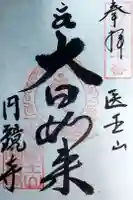 奉拝
医王山
大日如来
円鏡寺